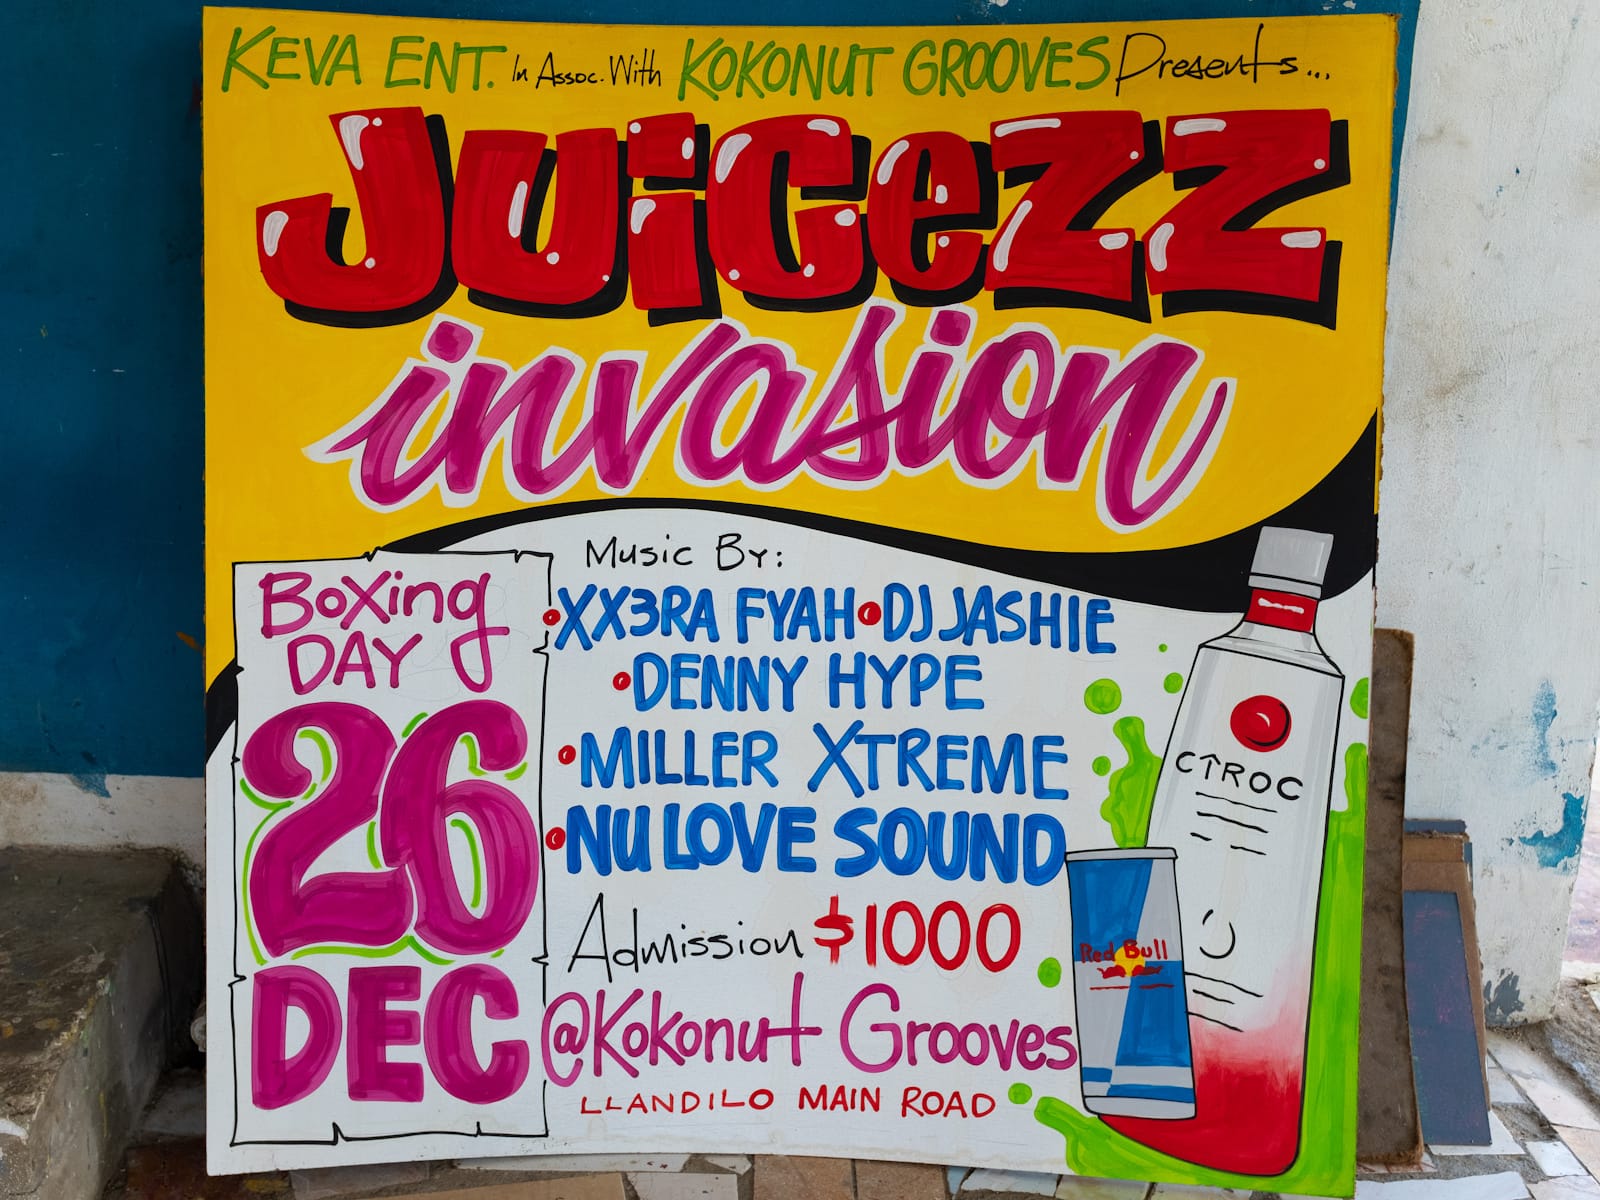 KEVA ENT. In Assoc. With KOKONUT GROOVES Presents...
JUiCeZZ
invasion
Boxing
DAY
26
DEC
Music By:
•XX3RA FYAH•DJ JASHIE
•DENNY HYPE
•MILLER XTREME
•NU LOVE SOUND
Admission $1000
@Kokonut Grooves
LLANDILO MAIN ROAD
CÎROC
Red Bull